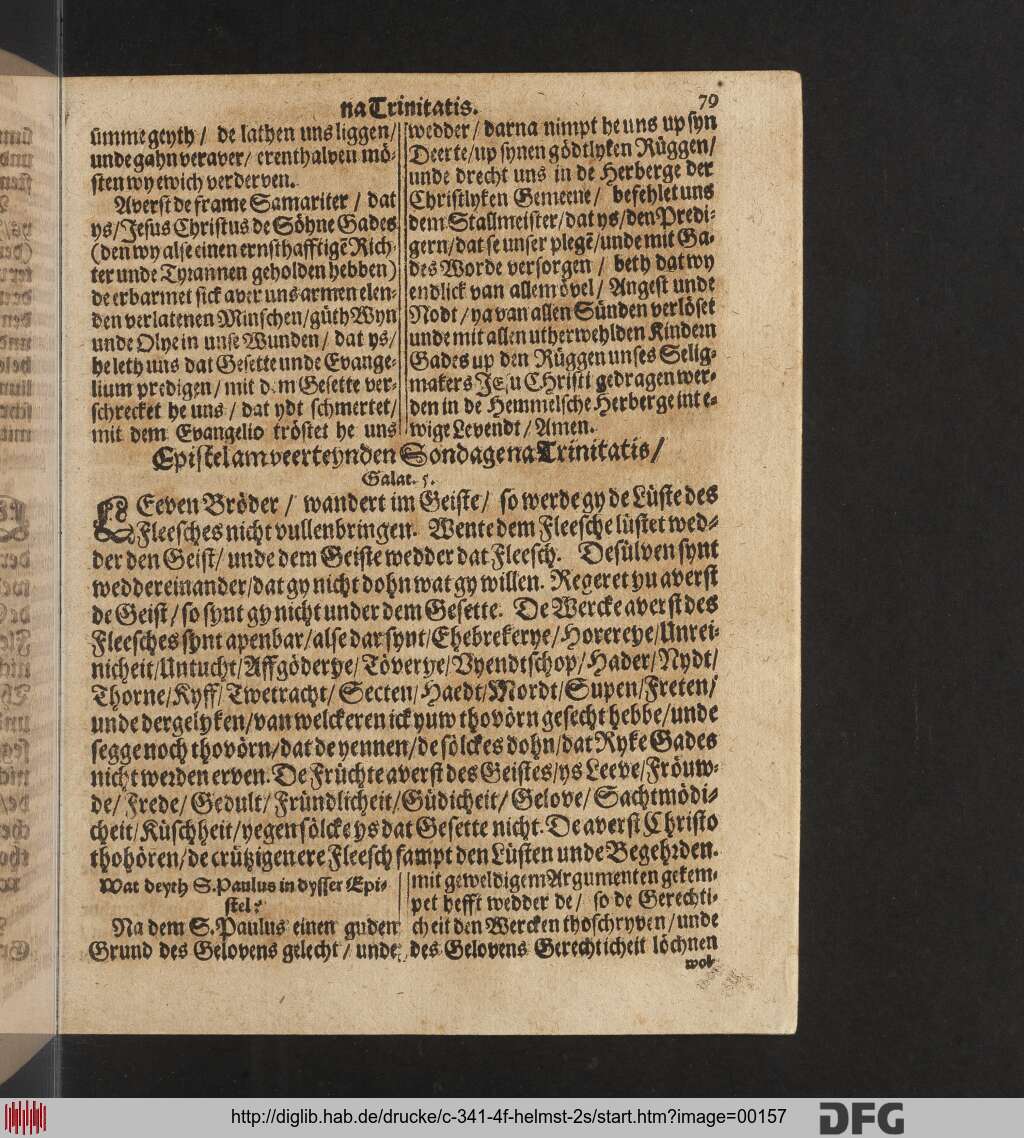 na Trinitatis.
79
ümme geyth / de lathen uns liggen /
unde gahn veraver / erenthalven mö-
sten wy ewich verderven.
Averst de frame Samariter / dat
ys / Jesus Christus de Söhne Gades
(den wy alse einen ernsthafftigē Rich-
ter unde Tyrannen geholden hebben)
de erbarmet sick aver uns armen elen-
den verlatenen Minschen / güth Wyn
unde Olye in unse Wunden / dat ys /
he leth uns dat Gesette unde Evange-
lium predigen / mit dem Gesette ver-
schrecket he uns / dat ydt schmertet /
mit dem Evangelio tröstet he uns
wedder / darna nimpt he uns up syn
Deerte / up synen gödtlyken Rüggen /
unde drecht uns in de Herberge der
Christlyken Gemeene / befehlet uns
dem Stallmeister / dat ys / den Predi-
gern / dat se unser plegē / unde mit Ga-
des Worde versorgen / beth dat wy
endlick van allem övel / Angest unde
Nodt / ya van allen Sünden verlöset
unde mit allen utherwehlden Kindern
Gades up den Rüggen unses Selig-
makers JEsu CHristi gedragen wer-
den in de Hemmelsche Herberge int e-
wige Levendt / Amen.
Epistel am veerteynden Sondage na Trinitatis /
Galat. 5.
LEeven Bröder / wandert im Geiste / so werde gy de Lüste des
Fleesches nicht vullenbringen. Wente dem Fleesche lüstet wed-
der den Geist / unde dem Geiste wedder dat Fleesch. Desülven synt
weddereinander / dat gy nicht dohn wat gy willen. Regeret yu averst
de Geist / so synt gy nicht under dem Gesette. De Wercke averst des
Fleesches synt apenbar / alse dar synt / Ehebrekerye / Horereye / Unrei-
nicheit / Untucht / Affgöderye / Töverye / Vyendtschop / Hader / Nydt /
Thorne / Kyff / Twetracht / Secten / Haedt / Mordt / Supen / Freten /
unde dergelyken / van welckeren ick yuw thovörn gesecht hebbe / unde
segge noch thovörn / dat de yennen / de sölckes dohn / dat Ryke Gades
nicht werden erven. De Früchte averst des Geistes / ys Leeve / Fröuw-
de / Frede / Gedult / Fründlicheit / Güdicheit / Gelove / Sachtmödi-
cheit / Küschheit / yegen sölcke ys dat Gesette nicht. De averst Christo
thohören / de crützigen ere Fleesch sampt den Lüsten unde Begehrden.
Wat deyth S. Paulus in dysser Epi-
stel?
Na dem S. Paulus einen guden
Grund des Gelovens gelecht / unde
mit geweldigem Argumenten gekem-
pet hefft wedder de / so de Gerechti-
cheit den Wercken thoschryven / unde
des Gelovens Gerechticheit löchnen
wol-
http://diglib.hab.de/drucke/c-341-4f-helmst-2s/start.htm?image=00157
DFG